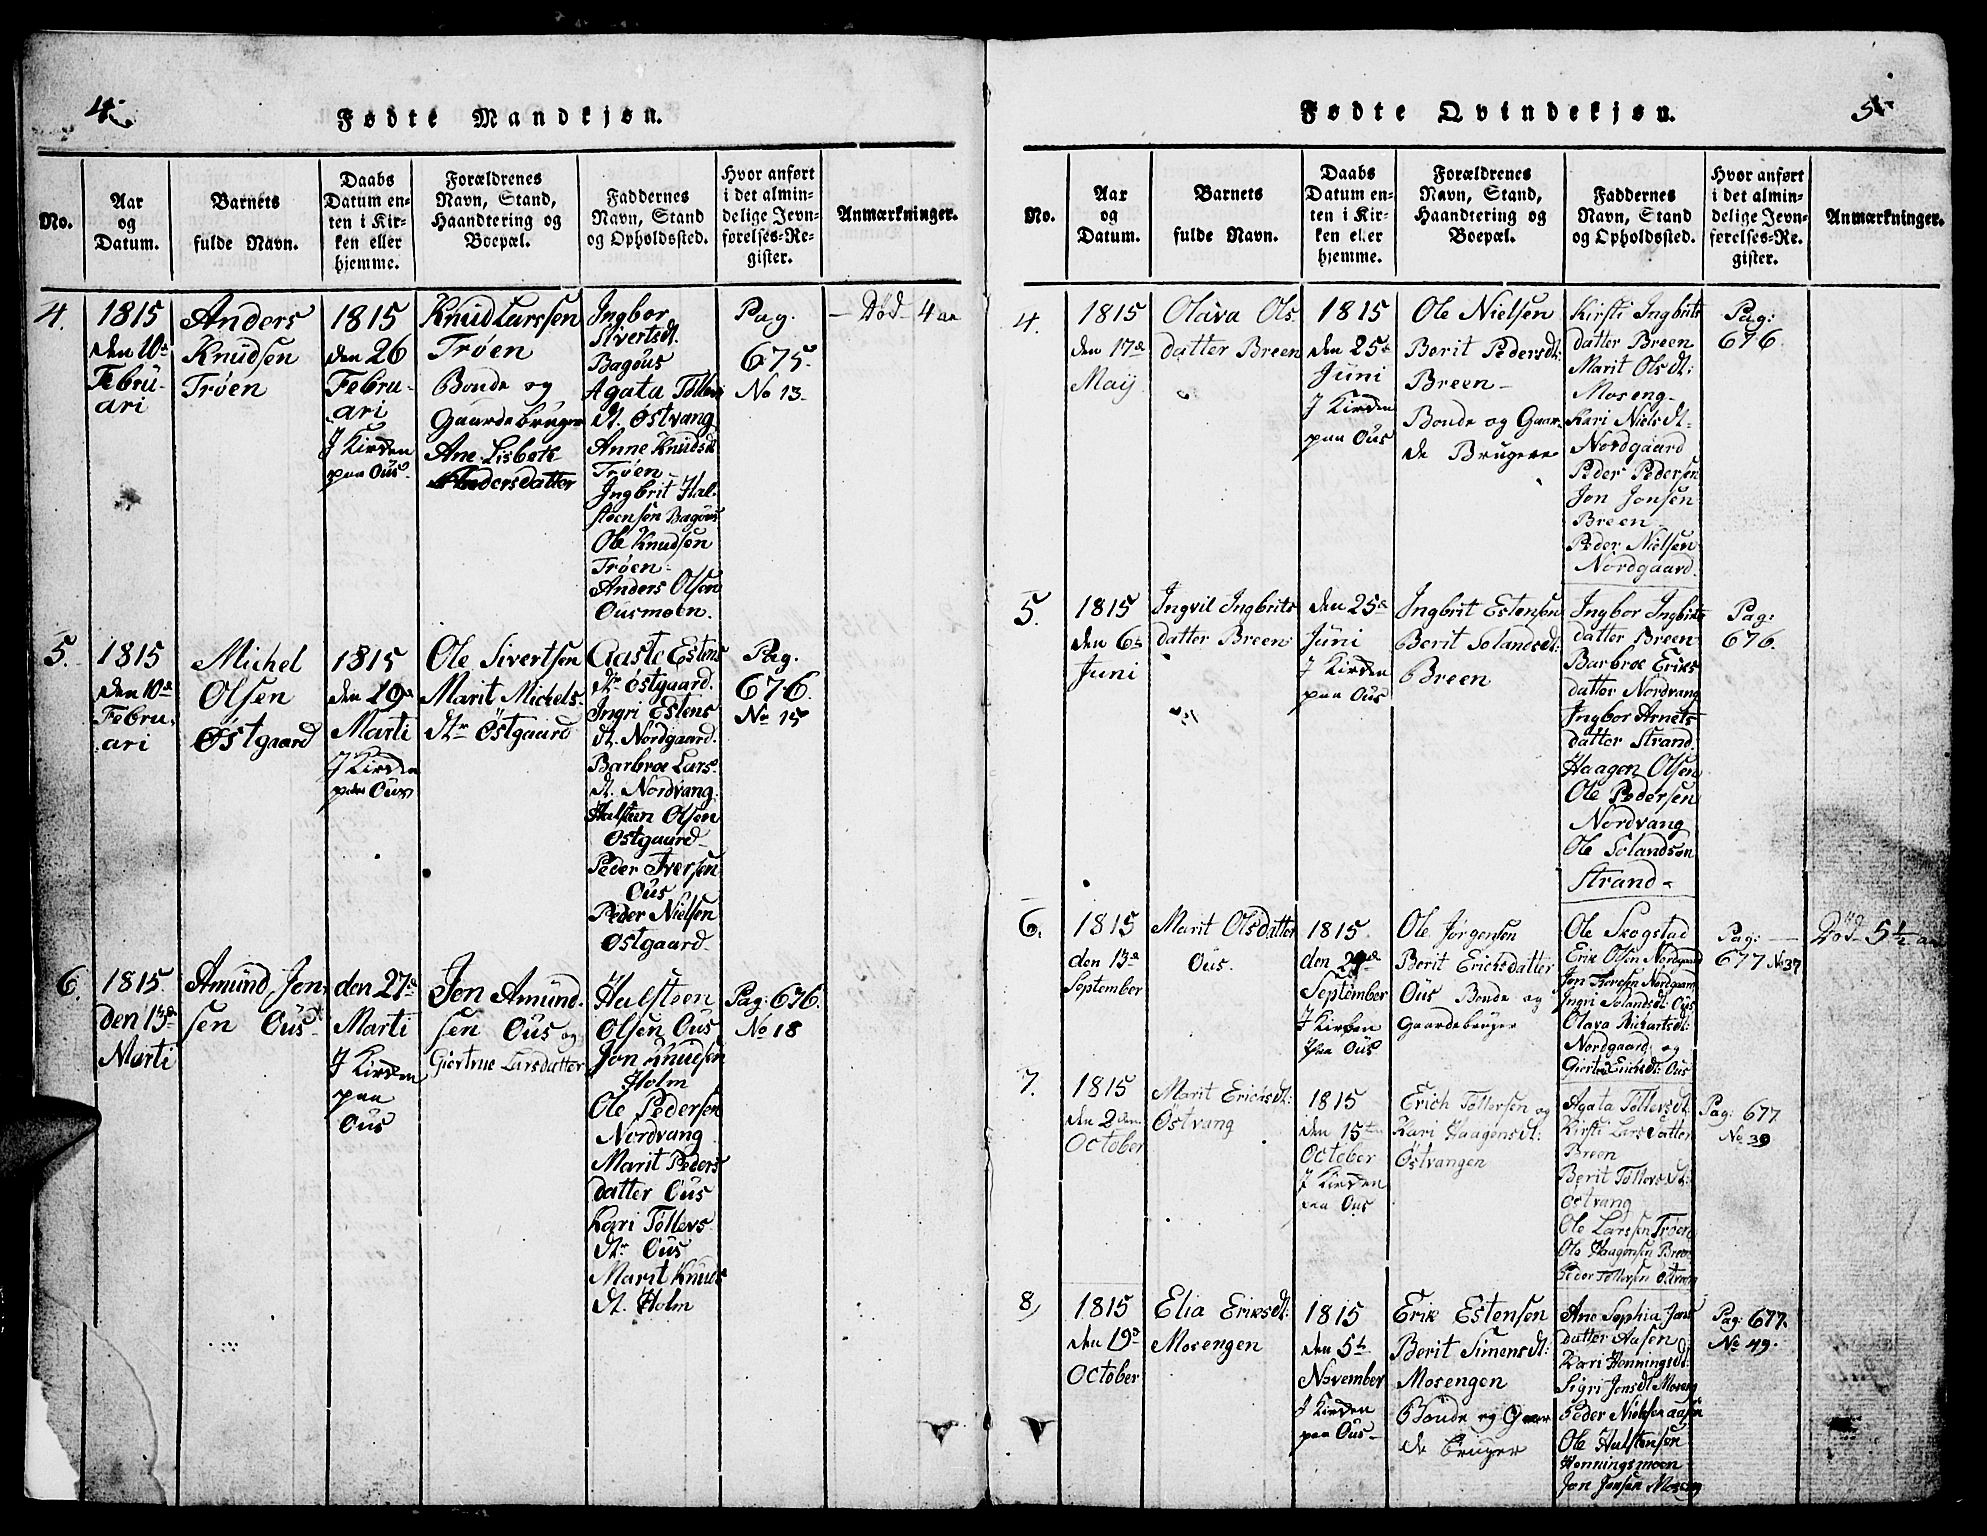 4
Fødte Mandkjøn.
No.
Aar
og
Datum.
Barnets
fulde Navn.
Daabs
Datum en-
ten i Kir-
ken eller
hjemme.
Forældrenes
Navn, Stand,
Haandtering og
Boepæl.
Faddernes
Navn, Stand
og Opholdssted.
Hvor anført
i det almin-
delige Jevn-
førelses-Re-
gister.
Anmærkninger.
4.
1815
den 10de
Febru-
ari
Anders
Knudsen
Trøen
1815
den 26
Febru-
ari
J Kirken
paa Ous
Knud Larssen
Trøen
Bonde og
Gaardebruger
Ane Lisbeth
Andersdatter
Ingbor
Sivertsdt.
Bagøus
Agata Tøllers
dt. Østvang
Anne Knudsdt
Trøen
Ingbrit Hal-
steensen Bagøus
Ole Knudsen
Trøen
Anders Olsen
Ousmoen.
Pag.
675
No 13
Død 4 aa
5.
1815
den 10de
Febru-
ari
Michel
Olsen
Østgaard
1815
den 19de
Marti
J Kirken
paa Ous
Ole Sivertsen
Marit Michels-
dtr Østgaard
Aaste Estens
dtr Østgaard.
Ingri Estens
dt. Nordgaard.
Barbroe Lars
dt. Nordvang.
Halsteen Olsen
Østgaard
Peder Iversen
Ous
Peder Nielsen
Østgaard
Pag.
676.
No 15
6.
1815
den 13de
Marti
Amund Jon-
sen Ous
den 27de
Marti
J Kirken
paa
Ous
Jon Amund-
sen Ous og
Giertrue Larsdatter
Halsteen
Olsen Ous
Jon Knudsen
Holm
Ole Pedersen
Nordvang
Marit Peders
datter Ous
Kari Tøllers
dtr Ous
Marit Knuds
dt. Holm
Pag: 676.
No 18
5
Fødte Qvindekjøn.
No.
Aar
og
Datum.
Barnets
fulde Navn.
Daabs
Datum en-
ten i Kir-
ken eller
hjemme.
Forældrenes
Navn, Stand,
Haandtering og
Boepæl.
Faddernes
Navn, Stand
og Opholdssted.
Hvor anført
i det almin-
delige Jevn-
førelses-Re-
gister.
Anmærkninger.
4.
1815
den 17de
May
Olava Ols
datter Breen
1815
den 25de
Juni
J Kirken
paa Ous
Ole Nielsen
Berit Pedersdt:
Breen
Bonde og Gaar-
de Brugere
Kirsti Ingbrits
datter Breen
Marit Olsdt:
Moseng
Kari Nielsdt
Nordgaard
Peder Pedersen
Jon Jonsen
Breen
Peder Nielsen
Nordgaard.
Pag:
676.
5.
1815
den 6te
Juni
Ingvil Ingbrits
datter Breen
den 25de
Juni
J Kirken
paa Ous
Ingbrit Estensen
Berit Solandsdt:
Breen
Ingbor Ingbrits
datter Breen
Barbroe Eriks
datter Nordvang
Ingbor Arnets
datter Strand
Haagen Olsen
Ole Pedersen
Nordvang
Ole Solandsen
Strand
Pag:
676.
6.
1815
den 13de
September
Marit Olsdatter
Ous.
1815.
den 24de
September
J Kirken
paa Ous
Ole Jørgensen
Berit Ericksdatter
Ous Bonde og
Gaardebruger
Ole Skogstad
Erik Olsen Nordgaard
Jon Iversen Nordgaard
Ingri Solandsdt: Ous
Olava Richartsdt:
Nordgaard og
Giertrue Erichsdt: Ous
Pag:
677 No 37
Død 5 1/2 aar
7.
1815
den 2den
October
Marit Erichsdt:
Østvang
1815
den 15ten
October
J Kirken
paa Ous
Erich Tøllersen og
Kari Haagensdt:
Østvangen
Agata Tøllersdt:
Kirsti Larsdatter
Breen
Berit Tøllersdt:
Østvang
Ole Larssen Trøen
Ole Haagensen Breen
Peder Tøllersen Østvang
Pag: 677
No 39
8,
1815
den 19de
October
Elia Eriksdt:
Mosengen
1815
den 5te
November
J Kirken
paa Ous
Erik Estensen
Berit Simensdt:
Mosengen
Bonde og Gaar
de bruger
Ane Sophia Jans
datter Aasen
Kari Henningsdt:
Sigri Jonsdt Moseng
Peder Nielsen Aasen
Ole Halstensen
Henningsmoen
Jon Jonsen Moseng
Pag: 677.
No 49.